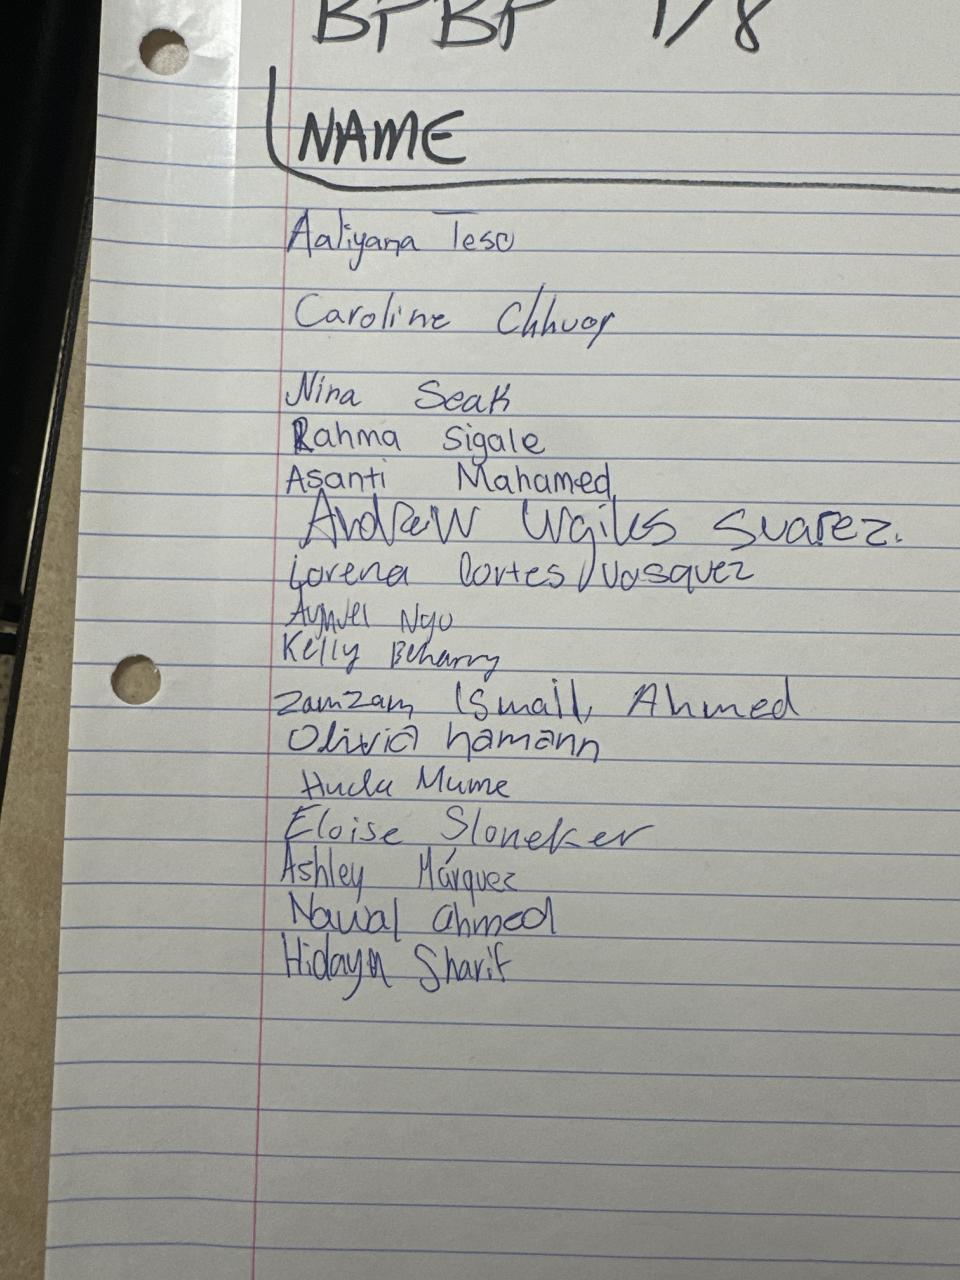 BPBP 1/8
NAME
Aaliyana Teso
Caroline Chhuor
Nina Seak
Rahma Sigale
Asanti Mahamed
Andrew Urgiles Suarez.
Lorena Cortes Vasquez
Ngu
Kelly Beharry
Zamzam Ismail Ahmed
Olivia hamann
Huda Mume
Eloise Sloneker
Ashley Márquez
Nawal ahmed
Hidaya Sharif